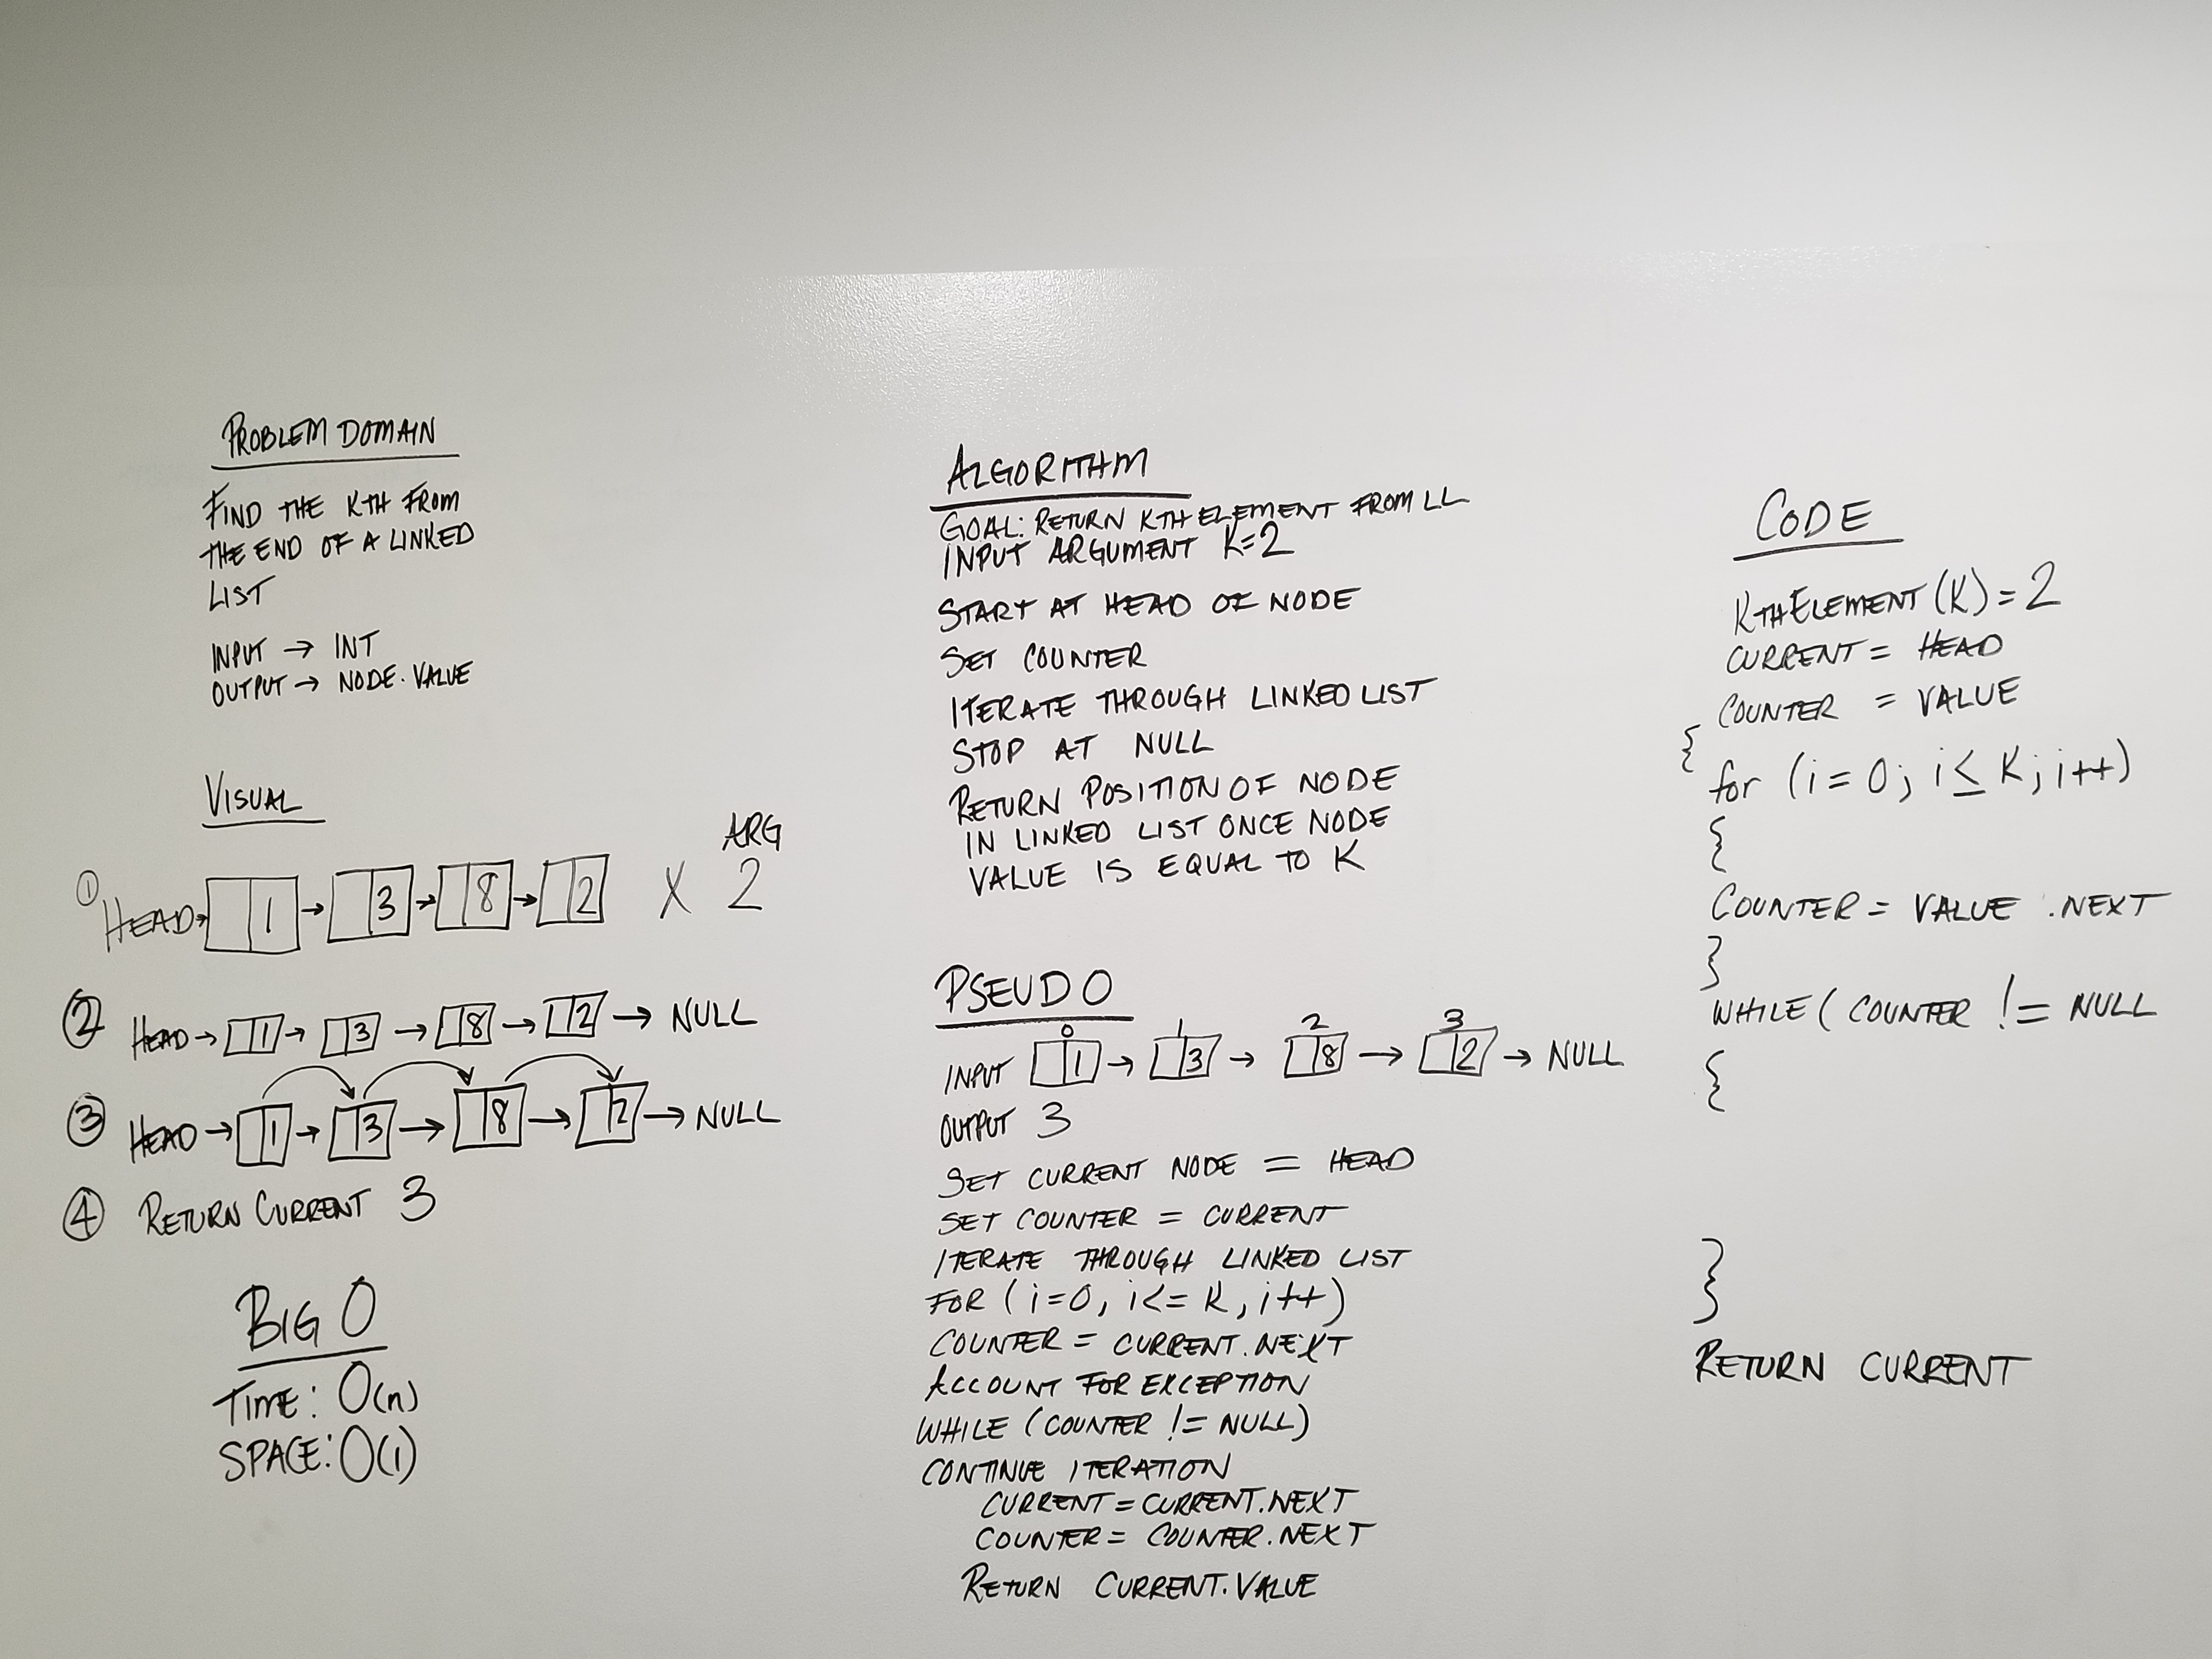 PROBLEM DOMAIN
FIND THE KTH FROM
THE END OF A LINKED
LIST
INPUT → INT
OUTPUT → NODE.VALUE
VISUAL
ARG
① HEAD→ 1 → 3 → 8 → 2 X 2
② HEAD → 1 → 3 → 8 → 2 → NULL
③ HEAD → 1 → 3 → 8 → 2 → NULL
④ RETURN CURRENT 3
BIG O
TIME: O(n)
SPACE: O(1)
ALGORITHM
GOAL: RETURN KTH ELEMENT FROM LL
INPUT ARGUMENT K=2
START AT HEAD OF NODE
SET COUNTER
ITERATE THROUGH LINKED LIST
STOP AT NULL
RETURN POSITION OF NODE
IN LINKED LIST ONCE NODE
VALUE IS EQUAL TO K
PSEUDO
0 1 2 3
INPUT 1 → 3 → 8 → 2 → NULL
OUTPUT 3
SET CURRENT NODE = HEAD
SET COUNTER = CURRENT
ITERATE THROUGH LINKED LIST
FOR (i=0, i<= K, i++)
COUNTER = CURRENT.NEXT
ACCOUNT FOR EXCEPTION
WHILE (COUNTER != NULL)
CONTINUE ITERATION
CURRENT = CURRENT.NEXT
COUNTER = COUNTER.NEXT
RETURN CURRENT.VALUE
CODE
KTHELEMENT(K) = 2
CURRENT = HEAD
COUNTER = VALUE
{
for (i = 0; i ≤ K; i++)
{
COUNTER = VALUE .NEXT
}
WHILE ( COUNTER != NULL
{
}
RETURN CURRENT